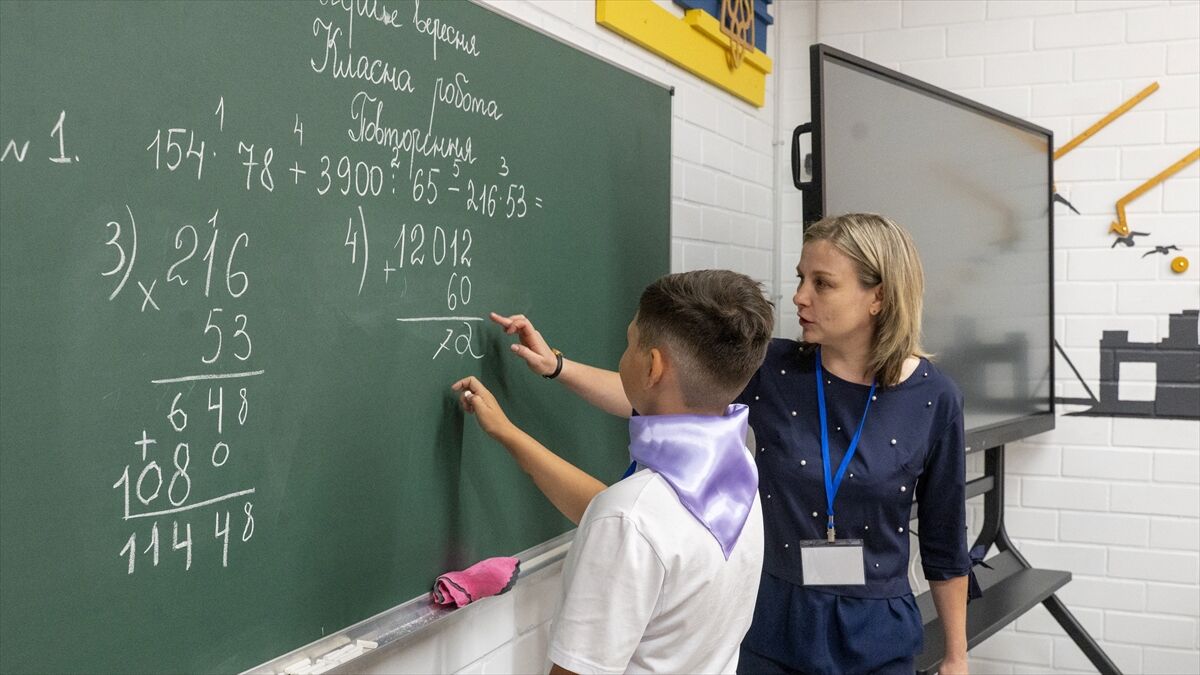 вересня
Класна робота
Повторення
1 4 2 5 3
№ 1. 154 · 78 + 3900 : 65 - 216 · 53 =
3) x 216
53
648
+
1080
11448
4) + 12012
60
72